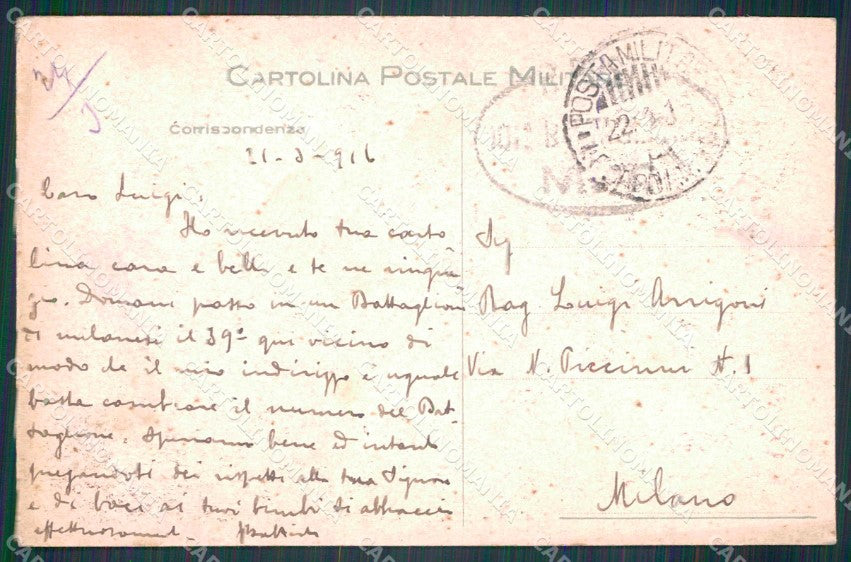 CARTOLINA POSTALE MILITARE
Corrispondenza
21-3-916
Caro Luigi.
Ho ricevuto tua carto
lina cara e bella e te ne ringra
zio. Domani passo in un Battaglione
di milanesi il 39º qui vicino di
modo che il mio indirizzo è uguale
basta cambiare il numero del Bat-
taglione. Speriamo bene ed intanto
pregandoti dei rispetti alla tua Signora
e di baci ai tuoi bimbi ti abbraccio
affettuosamente
POSTA MILITARE
22-3
Sig
Rag Luigi Arrigoni
Via N. Piccinni N. 1
Milano
CARTOLINOMANIA